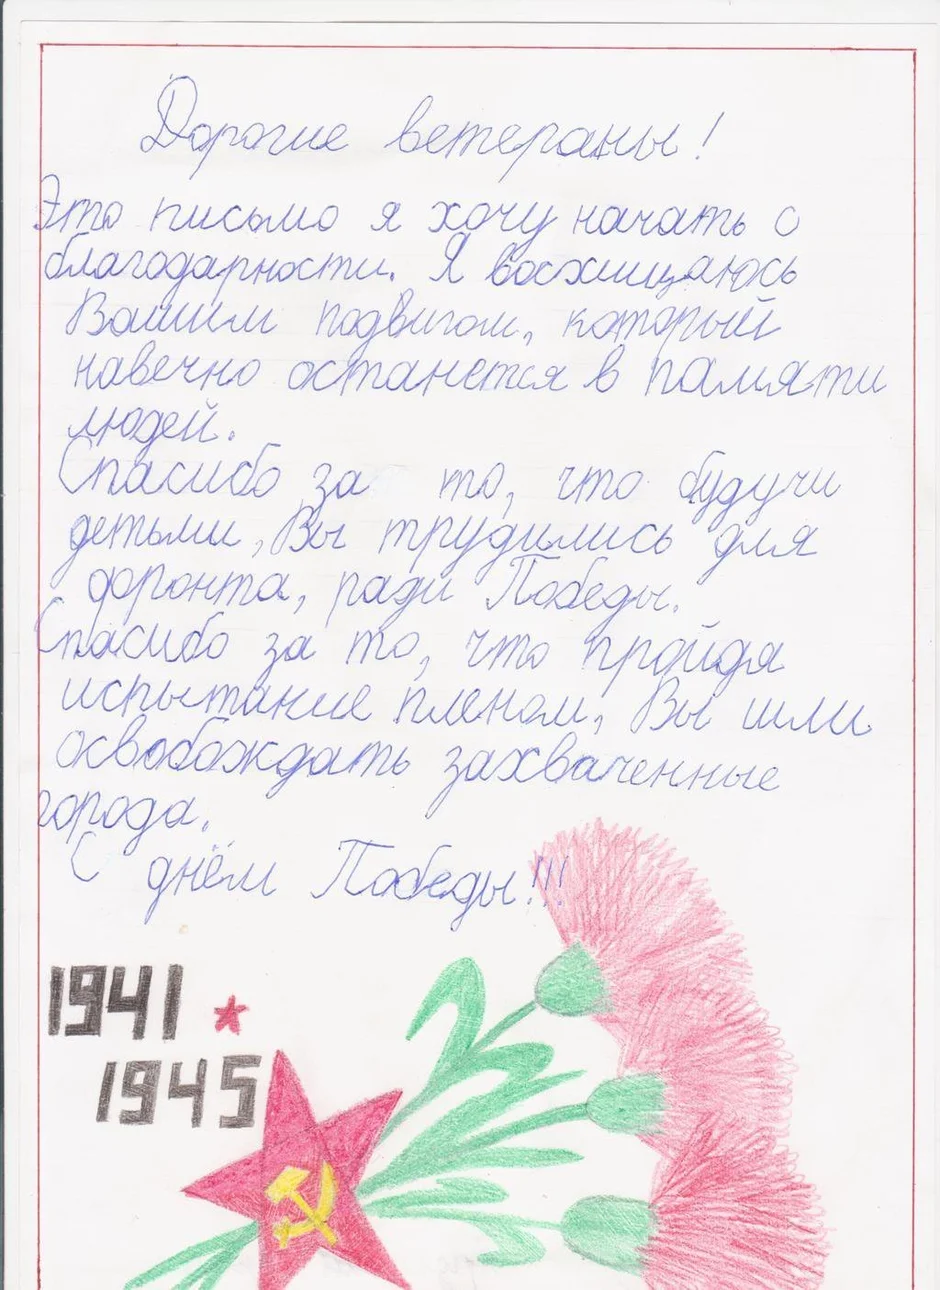 Дорогие ветераны!
Это письмо я хочу начать с
благодарности. Я восхищаюсь
Вашим подвигом, который
навечно останется в памяти
людей.
Спасибо за то, что будучи
детьми, Вы трудились для
фронта, ради Победы.
Спасибо за то, что пройдя
испытание пленом, Вы шли
освобождать захваченные
города.
С днём Победы!!!
1941
1945